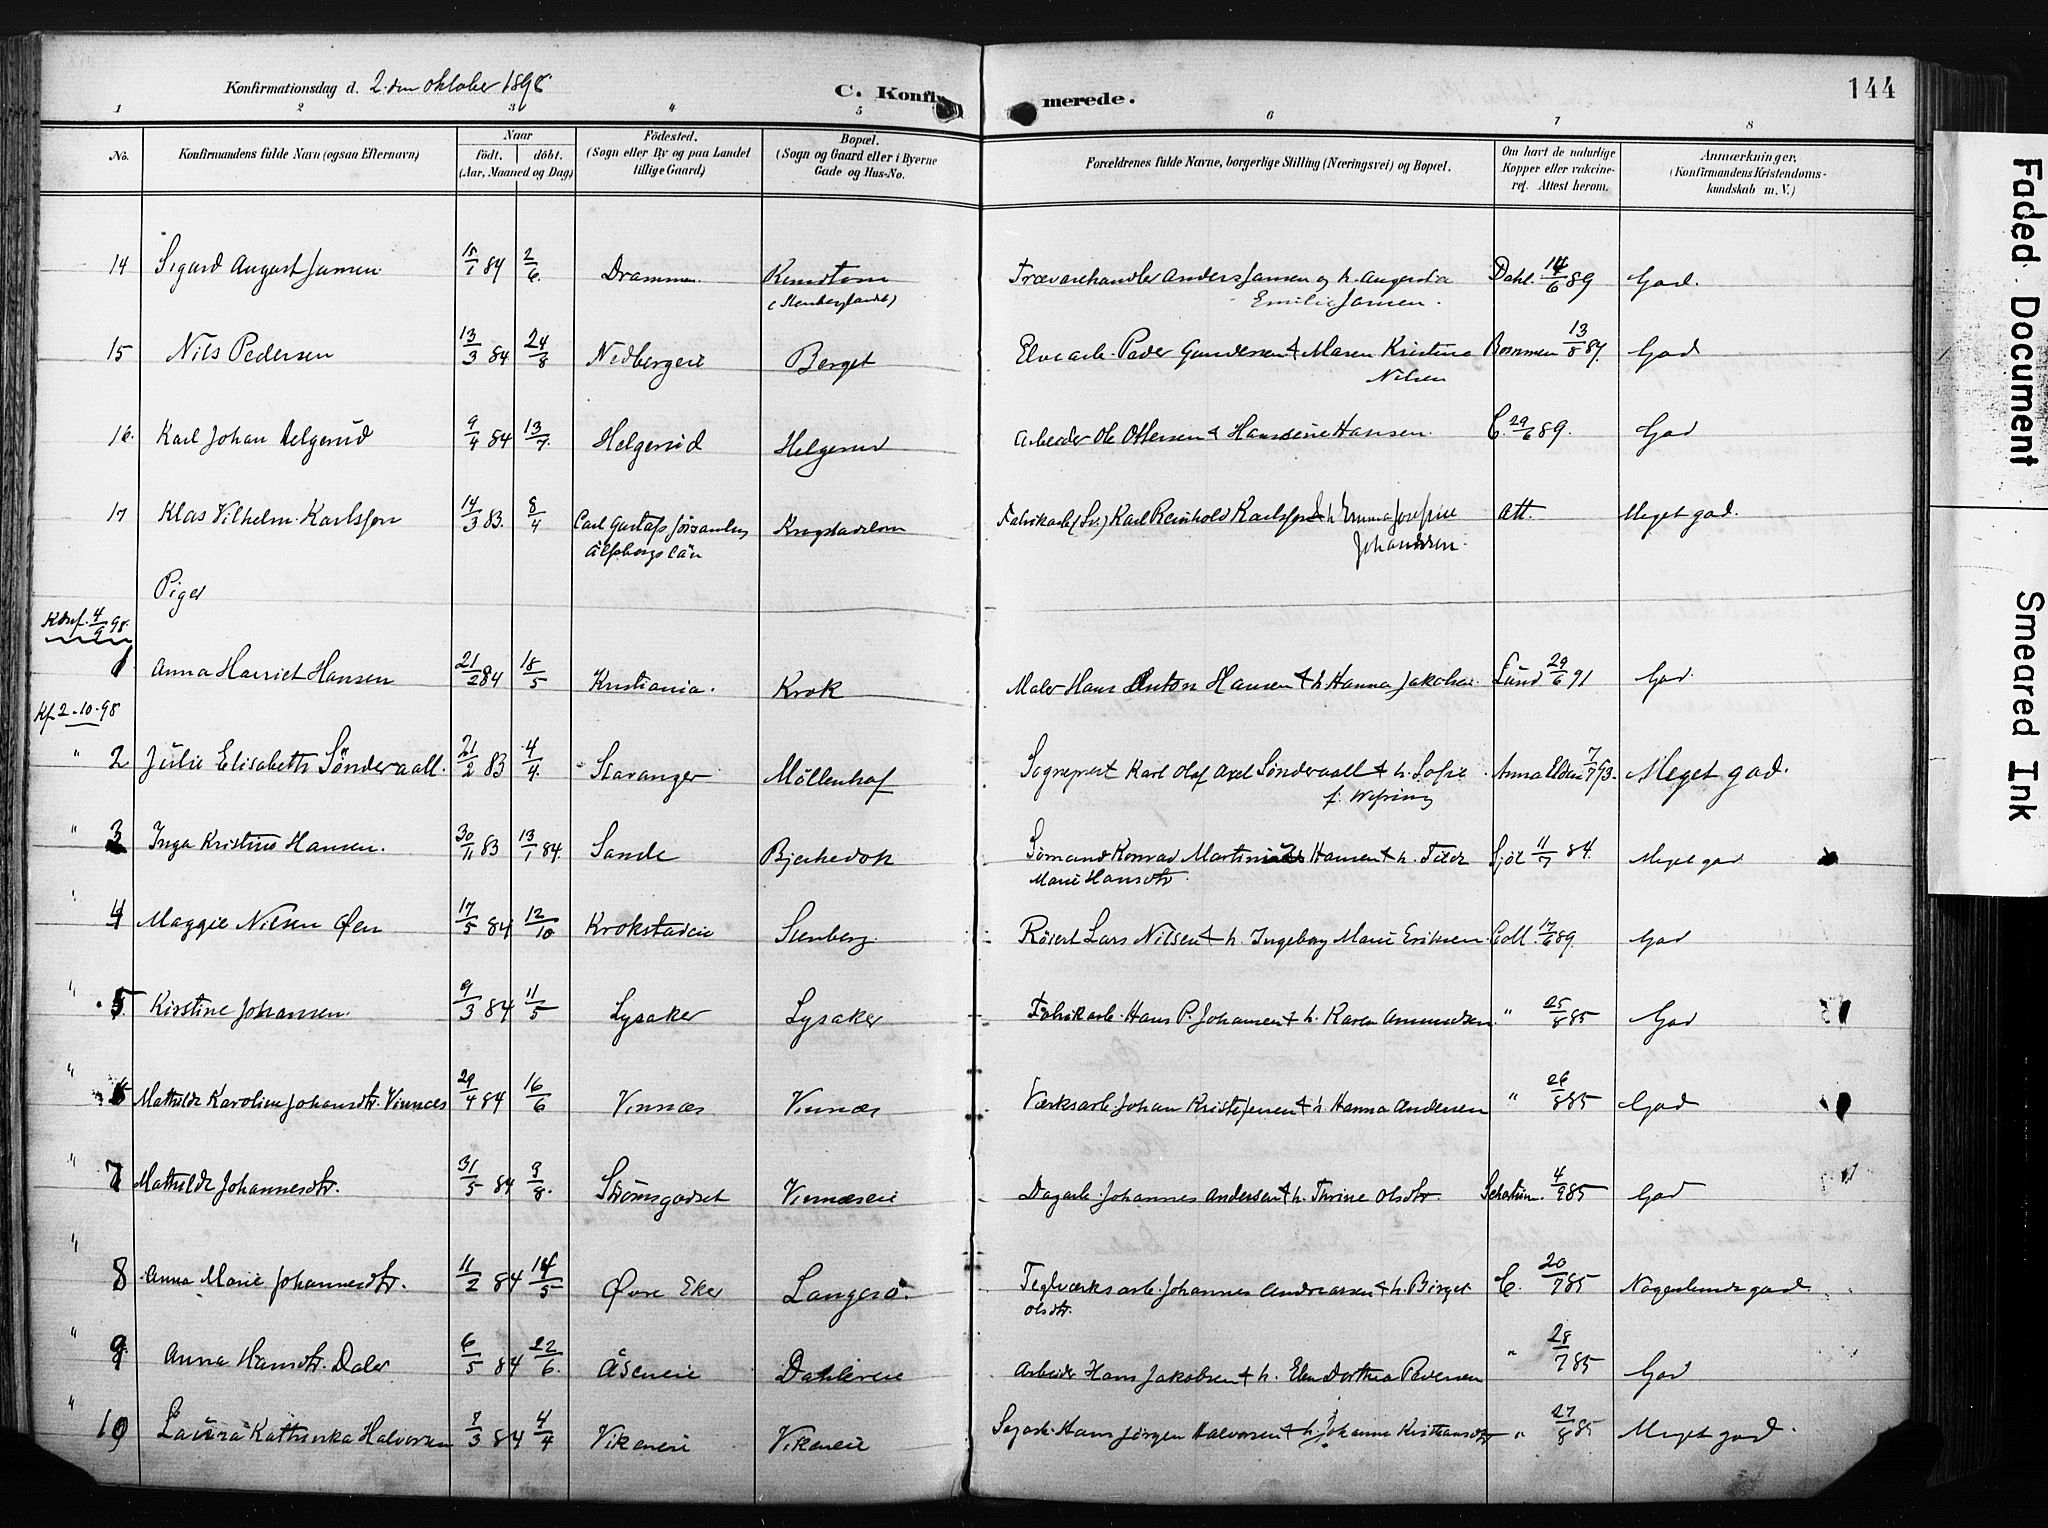 Konfirmationsdag d. 2. den oktober 1898
C. Konfirmerede.
144
1 2 3 4 5 6 7 8
No.
Konfirmandens fulde Navn (ogsaa Efternavn)
Naar
födt. döbt.
(Aar, Maaned og Dag)
Födested.
(Sogn eller By og paa Landet
tillige Gaard)
Bopæl.
(Sogn og Gaard eller i Byerne
Gade og Hus-No.
Forældrenes fulde Navne, borgerlige Stilling (Næringsvei) og Bopæl.
Om havt de naturlige
Kopper eller vakcine-
ret. Attest herom.
Anmærkninger,
(Konfirmandens Kristendoms-
kundskab m. V.)
14 Sigurd August Jansen 15/1 84 2/6. Drammen Trævarehandler Anders Jansen og h. Augusta Dahl. 14/6 89 God.
Emilie Jansen.
15 Nils Pedersen 13/3 84 24/8 Nedbergeie Berget Elvearb. Peder Gundersen & Maren Kristine 13/8 87. God
Nilsen
16. Karl Johan Helgerud 9/4 84 13/7. Helgerud Helgerud Arbeider Ole Ottersen & Hansine Hansen. C. 29/6 89. God
17 Klas Vilhelm Karlsson 14/3 83. 8/4 Carl Gustafs församling Fabrikarb. (Sv.) Karl Reinhold Karlsson & h. Emma Josefine Att. Meget god.
Älfsborgs län Johanssen.
Piger
Konf. 4/9 98.
1 Anna Harriet Hansen 21/2 84 18/5 Kristiania. Krok Maler Hans Anton Hansen & h. Hanna Jakobsen Lund 29/6 91 God.
Kf. 2-10-98
" 2 Julie Elisabeth Sönderaall. 21/2 83 4/4. Stavanger Möllenhof Sogneprest Karl Olaf Axel Sönderaall & h. Sofie Anna 7/7 93. Meget god.
f. Wefring
" 3 Inga Kristine Hansen. 30/11 83 13/1 84. Sande Bjerkedok Sömand Konrad Hansen & h. 11/7 84. Meget god
Marie Hansdtr.
" 4 Maggie Nilsen Øen 17/5 84 12/10 Krokstadeie Stenberg Lars Nilsen & h. Ingeborg Marie Eriksen. 17/6 89. God
" 5 Kirstine Johansen. 9/3 84 11/5 Lysaker Lysaker Fabrikarb. Hans P. Johansen & h. Karen Amundsen. " 25/8 85 God
" 6 Mathilde Karoline Johansdtr. Vinnæs 29/4 84 16/6 Vinnæs Vinnæs Værksarb. Johan Kristofersen & h. Hanna Andersen " 26/8 85 God
" 7 Mathilde Johannesdtr. 31/5 84 3/8. Strömsgodset Vinnæseie Dagarb. Johannes Andersen & h. Thrine Olsdtr. 4/9 85 God
" 8 Anna Marie Johannesdtr. 11/2 84 14/5 Øvre Eker Langesö. Teglværksarb. Johannes Andreassen & h. Birget C. 20/7 85 Nogenlunde god.
Olsdtr.
" 9 Anna Hansdtr. Daler 6/5 84 22/6. Åseneie Dahlereie Arbeider Hans Jakobsen & h. Elen Dorthea Pedersen " 28/7 85 God
" 10 Laura Kathinka Halvorsen 7/3 84 4/4 Vikeneie Vikeneie Sagarb. Hans Jörgen Halvorsen & h. Johanne Kristiansdtr " 27/8 85 Meget god.
Faded Document
Smeared Ink